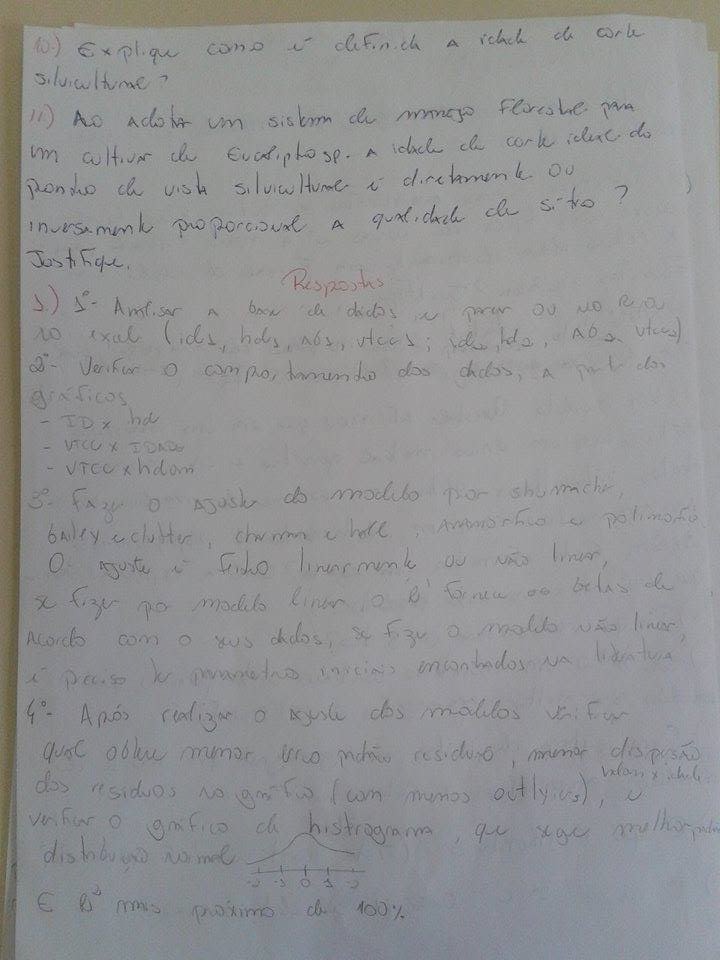 10.) Explique como é definida a idade de corte
silvicultural?
11.) Ao adotar um sistema de manejo florestal para
um cultivar de Eucaliphosp. a idade de corte ideal do
ponto de vista silvicultural é diretamente ou
inversamente proporcional a qualidade de sitio?
Justifique.
Respostas
1.) 1º- Analisar a base de dados e parear ou no R ou
no exel (id1, hd1, AB1, vtcc1; id2, hd2, AB2, vtcc2)
2º- Verificar o comportamento dos dados, a partir dos
gráficos
- ID x hd
- VTCC x IDADE
- VTCC x hdom
3º- Fazer o ajuste do modelo por shumacher,
bailey e clutter, chapman e , anamórfico e polimorfico
O ajuste é feito linearmente ou não linear,
se fizer por modelo linear, o R fornece os betas de
acordo com o seus dados, se fizer o modelo não linear,
é preciso ter parametros iniciais encontrados na literatura
4º- Após realizar o ajuste dos modelos verificar
qual obteve menor erro padrão residual, menor dispersão
dos residuos no gráfico (com menos outlyies), e
valores x idade
verificar o gráfico de histograma, que segue melhor
distribuição normal
-2 -1 0 1 2
E R² mais próximo de 100%